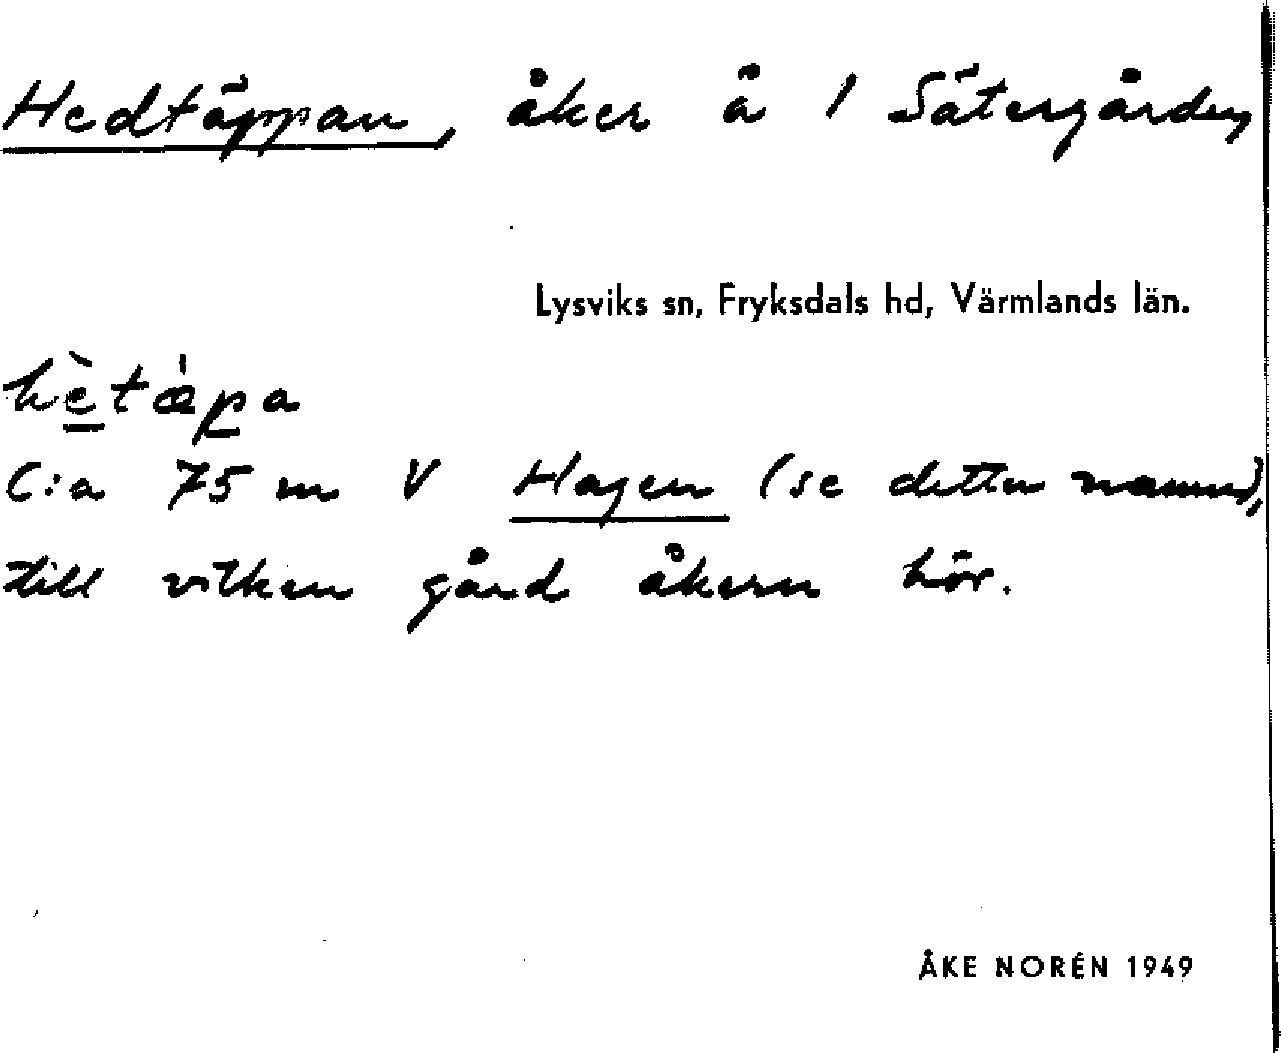 Hedtäppan, åker å 1 Sätergården,
Lysviks sn, Fryksdals hd, Värmlands län.
hètǽpa
C:a 75 m V Hagen (se detta namn),
till vilken gård åkern hör.
ÅKE NORÉN 1949